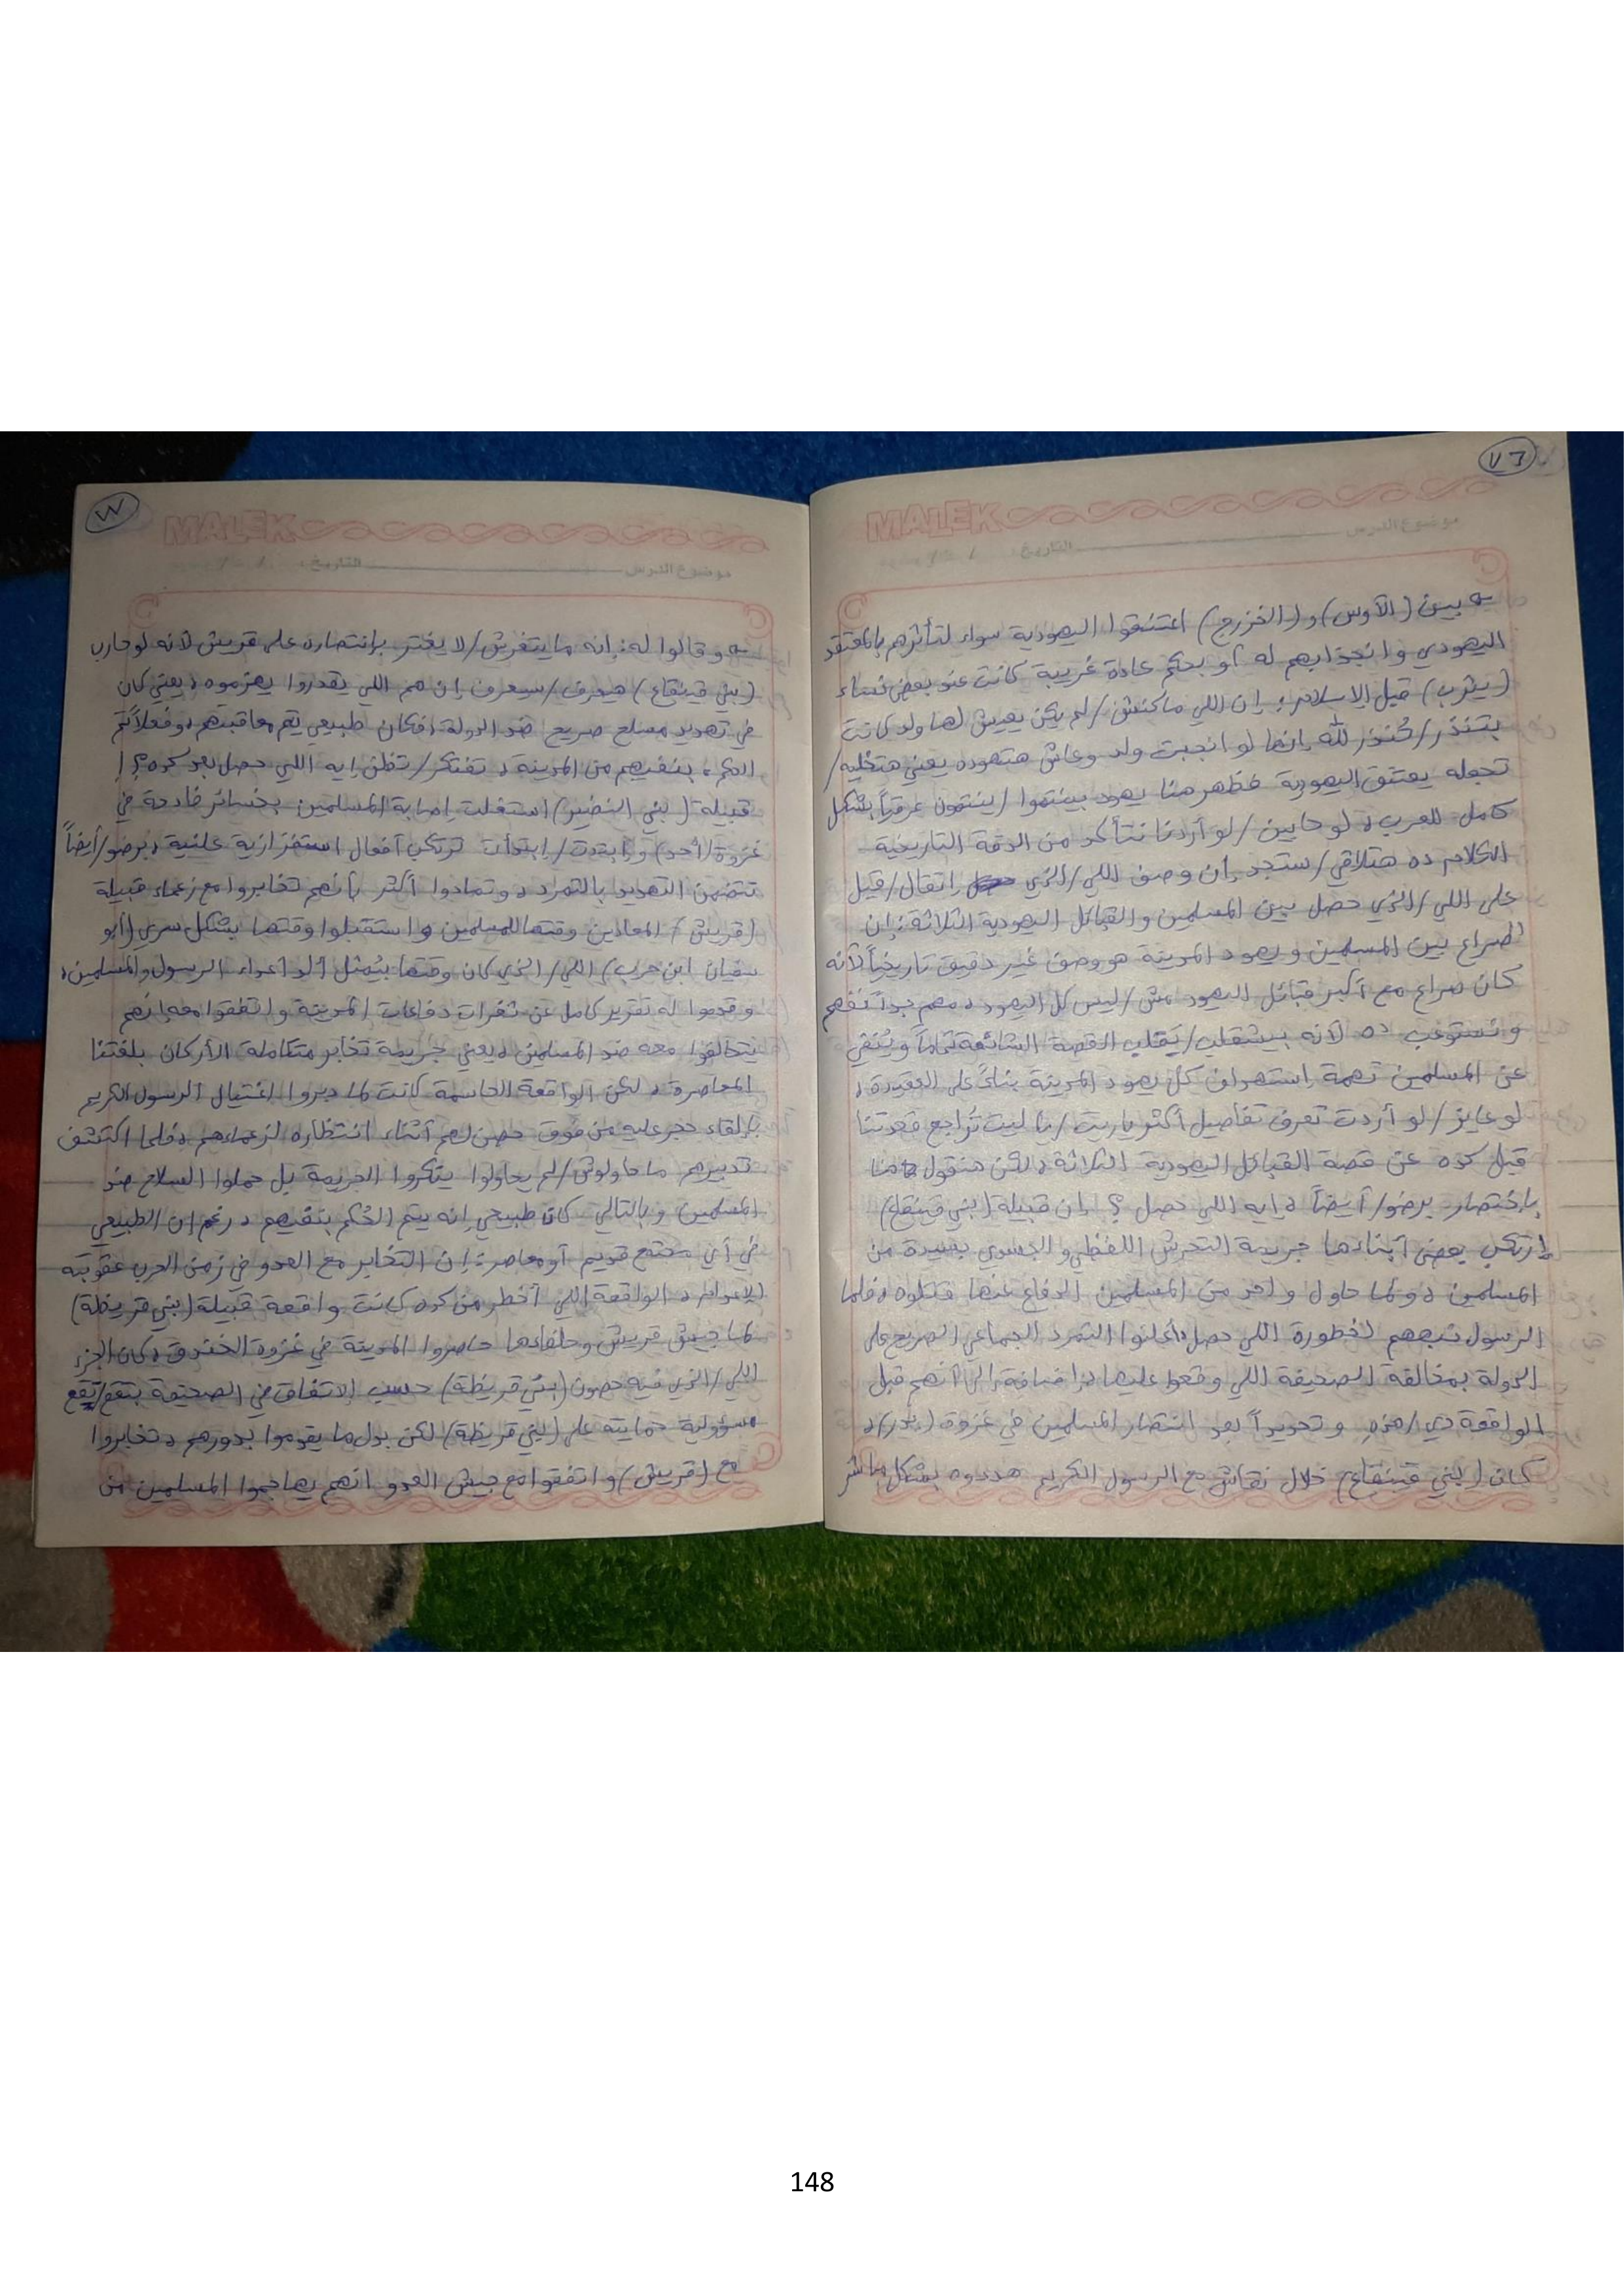 ٧٦
MALEK
موضوع الدرس التاريخ: / /
بين (الأوس) و (الخزرج) اعتنقوا اليهودية سواء لتأثرهم بالمعتقد
اليهودي وانجذابهم له أو بحكم عادة غريبة كانت عند بعض نساء
(يثرب) قبل الإسلام: إن اللي ماكنش/لم يكن يعيش لها ولد كانت
بتنذر/تُنذر لله إنها لو انجبت ولد وعاش هتهوده يعني هتخليه/
تجعله يعتنق اليهودية فظهر هنا يهود بينتموا/ينتمون عرقياً بشكل
كامل للعرب، لو حابين/لو أردنا نتأكد من الدقة التاريخية
الكلام ده هتلاقي/ستجد إن وصف اللي/الذي اتقال/قيل
على اللي/الذي حصل بين المسلمين والقبائل اليهودية الثلاثة: إن
الصراع بين المسلمين ويهود المدينة هو وصف غير دقيق تاريخياً لأنه
كان صراع مع أكبر قبائل اليهود مش/ليس كل اليهود، مهم جداً نفهم
ونستوعب ده لأنه بيشقلب/يَقلب القصة الشائعة تماماً ويُنفي
عن المسلمين تهمة استهداف كل يهود المدينة بناءً على العقيدة،
لو عايز/لو أردت تعرف تفاصيل أكثر ياريت/يا ليت تُراجع قعدتنا
قبل كده عن قصة القبائل اليهودية الثلاثة، لكن هنقول هنا
بإختصار برضو/أيضاً، إيه اللي حصل؟ إن قبيلة (بني قينقاع)
إرتكب بعض أبناءها جريمة التحرش اللفظي والجسدي بسيدة من
المسلمين، ولما حاول واحد من المسلمين الدفاع عنها قتلوه، فلما
الرسول نبههم لخطورة اللي حصل أعلنوا التمرد الجماعي الصريح على
الدولة بمخالفة الصحيفة اللي وقعوا عليها، إضافة إلى أنهم قبل
الواقعة دي/هذه وتحديداً بعد انتصار المسلمين في غزوة (بدر)،
كان (بني قينقاع) خلال نقاش مع الرسول الكريم هددوه بشكل مباشر
٧٧
MALEK
موضوع الدرس التاريخ: / /
وقالوا له: إنه مايتغرش/لا يغتر بإنتصاره على قريش لأنه لو حارب
(بني قينقاع) هيعرف/سيعرف إن هم اللي يقدروا يهزموه، يعني كان
في تهديد مسلح صريح ضد الدولة، فكان طبيعي يتم معاقبتهم، وفعلاً تم
الحكم بنفيهم من المدينة، تفتكر/تظن إيه اللي حصل بعد كده؟!
قبيلة (بني النضير) استغلت إصابة المسلمين بخسائر فادحة في
غزوة (أحد) وابتدت/إبتدأت ترتكب أفعال استفزازية علنية، برضو/أيضاً
تتضمن التهديد بالتمرد، وتمادوا أكثر بأنهم تخابروا مع زعماء قبيلة
(قريش) المعادين وقتها للمسلمين واستقبلوا وقتها بشكل سري (أبو
سفيان ابن حرب) اللي/الذي كان وقتها بيُمثل ألد أعداء الرسول والمسلمين،
وقدموا له تقرير كامل عن ثغرات دفاعات المدينة واتفقوا معه إنهم
يتحالفوا معه ضد المسلمين، يعني جريمة تخابر متكاملة الأركان بلغتنا
المعاصرة، لكن الواقعة الحاسمة كانت لما دبروا اغتيال الرسول الكريم
بإلقاء حجر عليه من فوق حصن لهم أثناء انتظاره لزعماءهم، فلما اكتشف
تدبيرهم ماحاولوش/لم يحاولوا ينكروا الجريمة بل حملوا السلاح ضد
المسلمين وبالتالي كان طبيعي إنه يتم الحُكم بنفيهم، رغم إن الطبيعي
في أي مجتمع قديم أو معاصر: إن التخابر مع العدو في زمن الحرب عقوبته
الإعدام، الواقعة اللي أخطر من كده كانت واقعة قبيلة (بني قريظة)
لما جيش قريش وحلفاءها حاصروا المدينة في غزوة الخندق، كان الجزء
اللي/الذي فيه حصون (بني قريظة) حسب الاتفاق في الصحيفة بتقع/تقع
مسؤولية حمايته على (بني قريظة) لكن بدل ما يقوموا بدورهم، تخابروا
مع (قريش) واتفقوا مع جيش العدو انهم يهاجموا المسلمين من
148